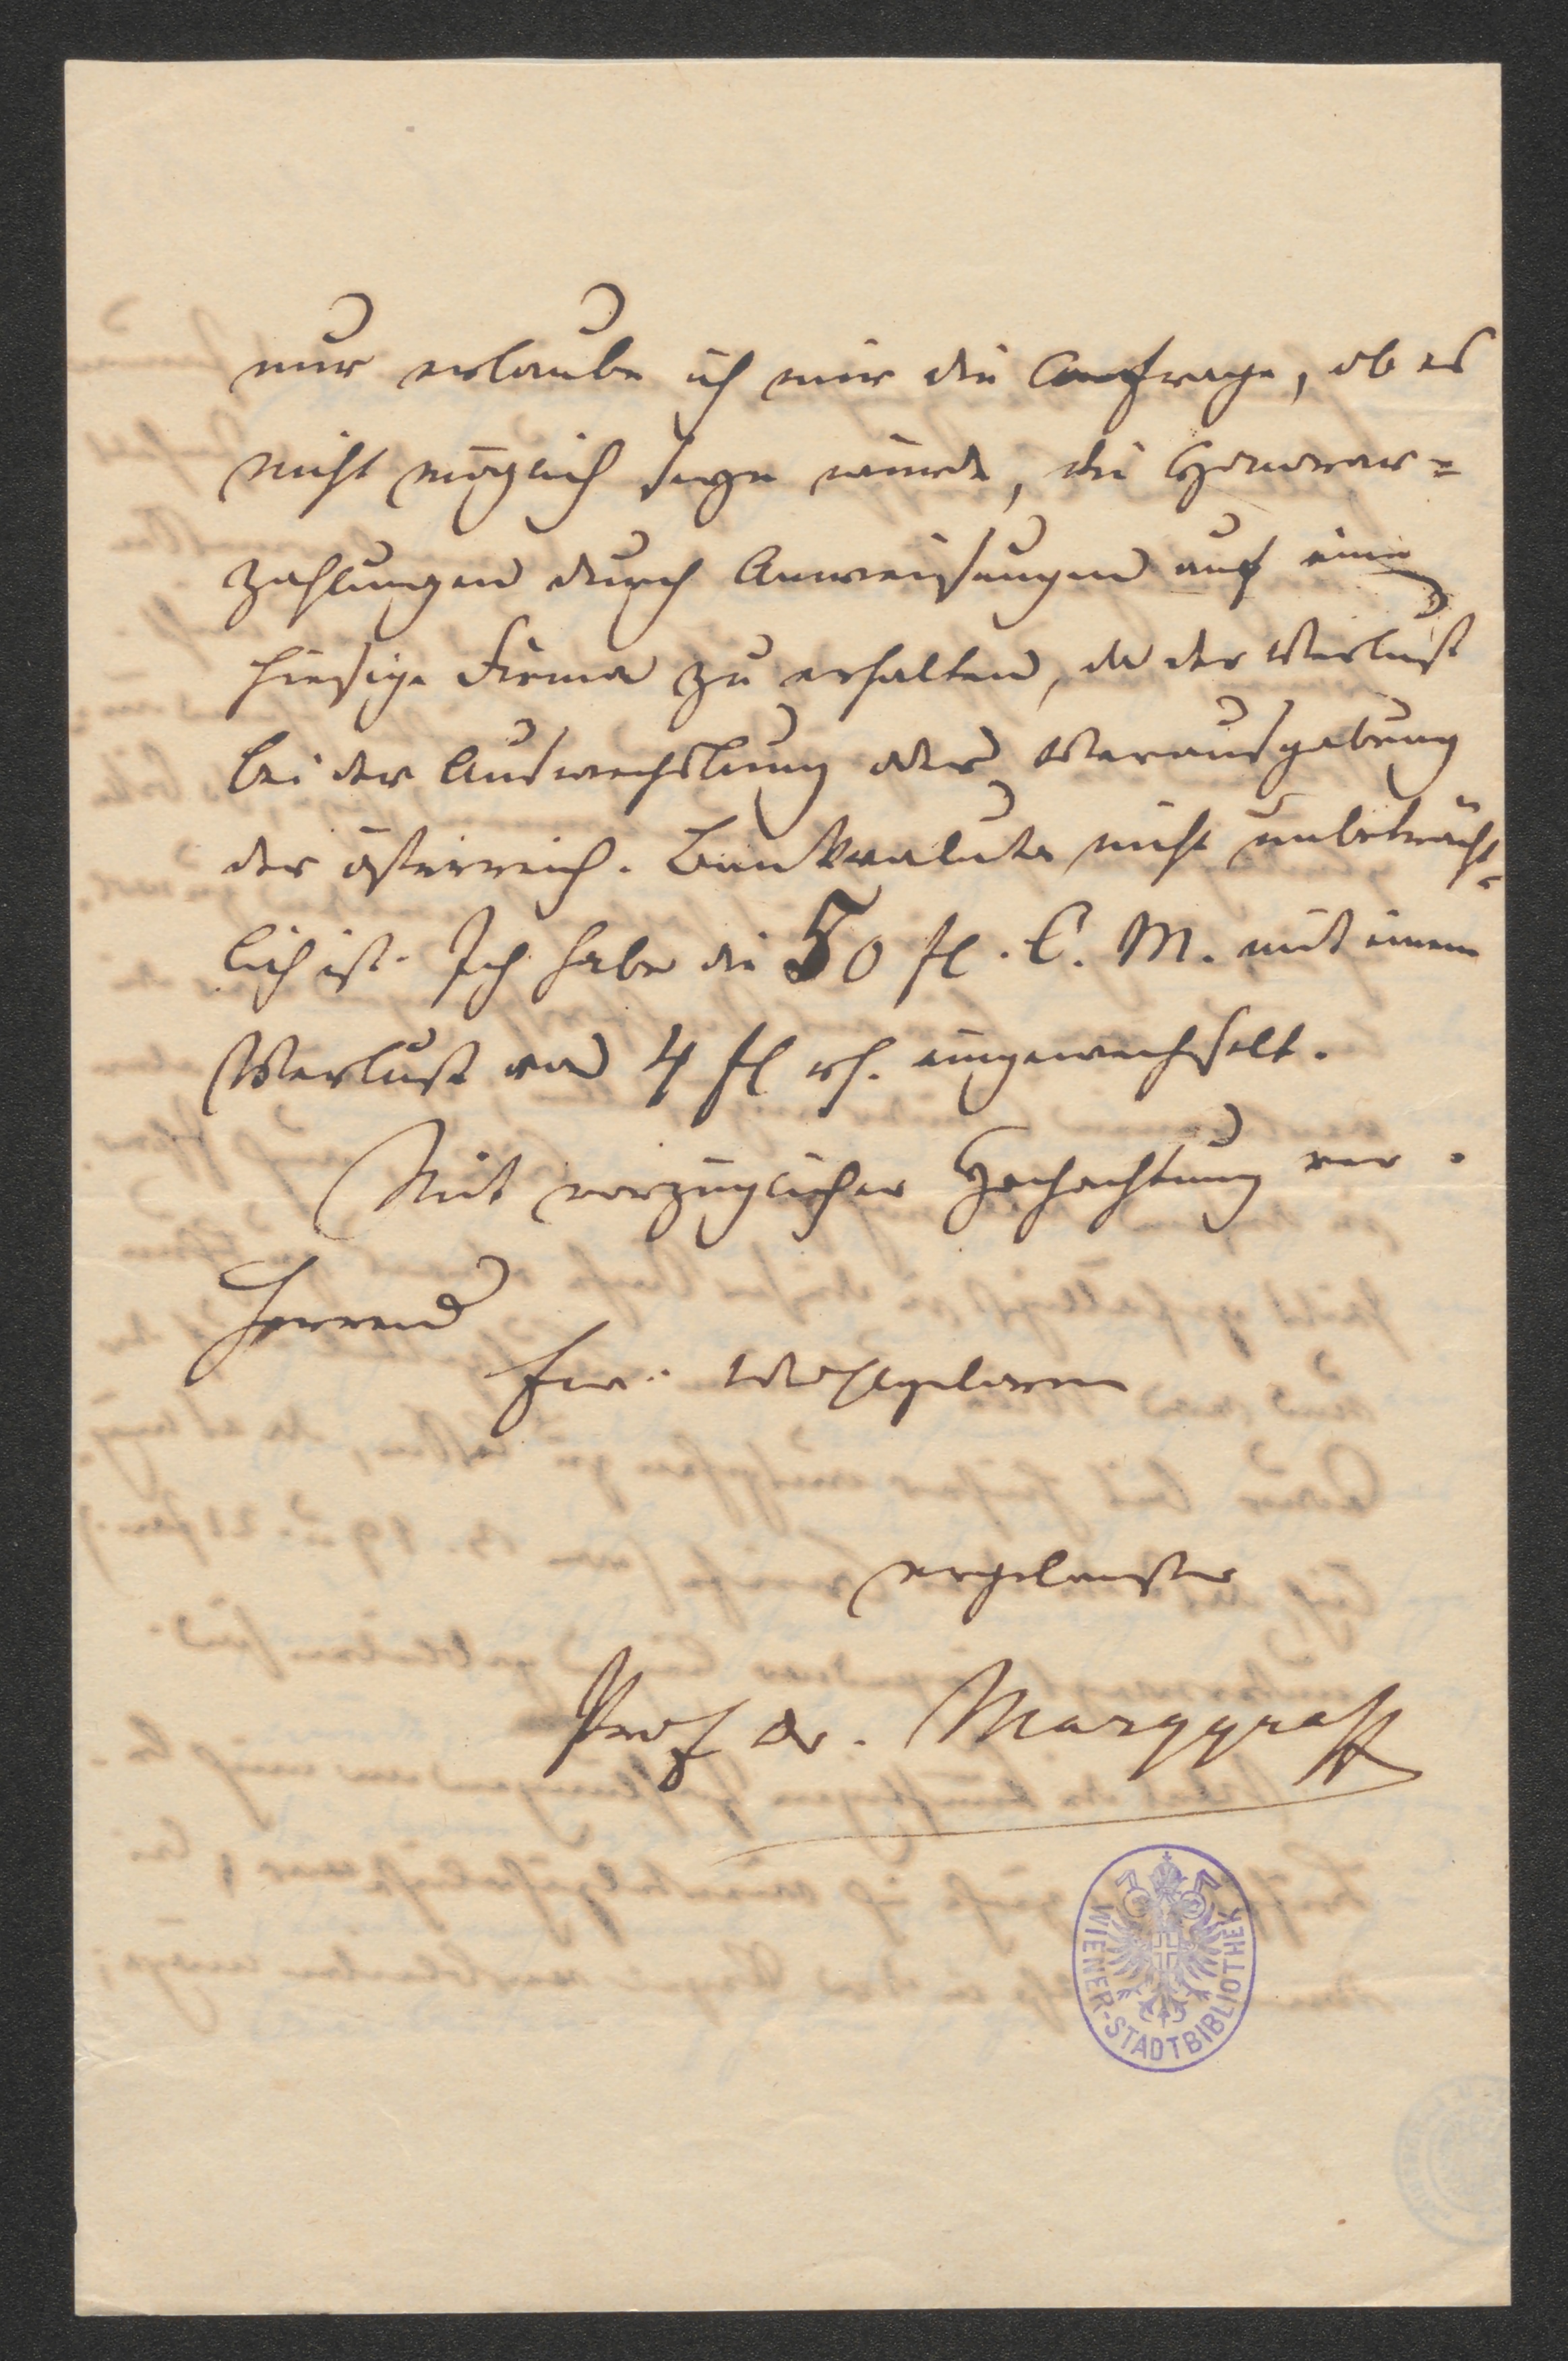 nur erlaube ich mir die Anfrage, ob es
nicht möglich seyn würde, die Honorar=
zahlungen durch Anweisungen auf eine
hiesige Firma zu erhalten, da der Verlust
bei der Auswechslung oder Verausgabung
der österreich. Bankvaluta nicht unbeträcht-
lich ist. Ich habe die 50 fl. C. M. mit einem
Verlust von 4 fl rh. eingewechselt.
Mit vorzüglicher Hochachtung ver.
harrend
Euer Wohlgeboren
ergebenster
Prof Dr. Marggraff
WIENER-STADTBIBLIOTHEK